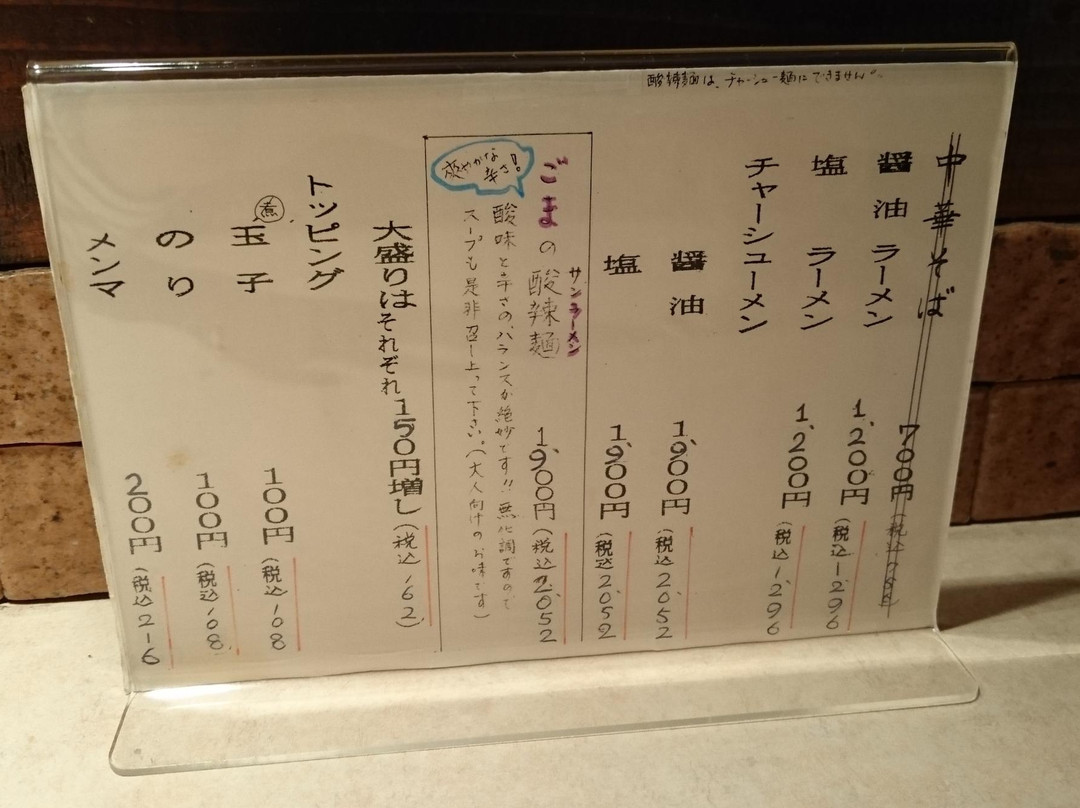 酸辣麺は、チャーシュー麺にできません。
中華そば 700円(税込
醤油 ラーメン 1,200円(税込1,296
塩 ラーメン 1,200円(税込1,296
チャーシューメン
醤油 1,900円(税込2,052
塩 1,900円(税込2,052
サンラーメン
ごまの酸辣麺 1,900円(税込2,052
爽やかな
辛さ!
酸味と辛さの、バランスが絶妙です!!無化調ですので
スープも是非召し上って下さい。(大人向けのお味です)
大盛りはそれぞれ150円増し(税込162)
トッピング
煮玉子 100円(税込108
のり 100円(税込108
メンマ 200円(税込216